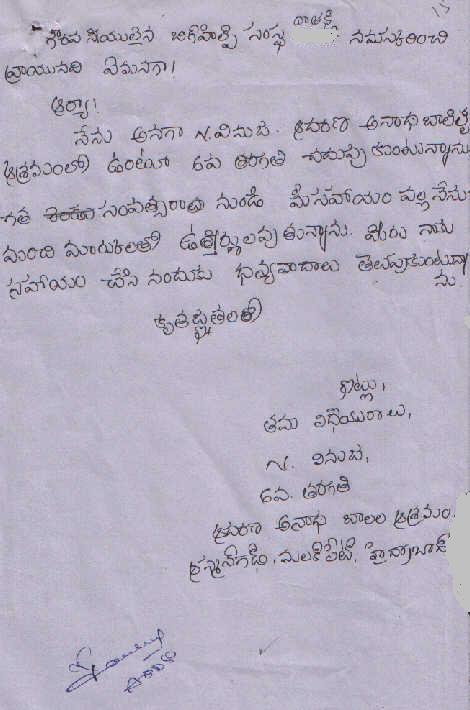 15
గౌరవ నీయులైన బిగ్‌హెల్ప్ సంస్థ నమస్కరించి
వ్రాయునది ఏమనగా!
ఆర్యా!
నేను అనగా N. వినుత. ఆదరణ అనాధ బాలల
ఆశ్రమంలో ఉంటూ 6వ తరగతి చదువు కుంటున్నాను
గత సంవత్సరాల నుండి మీసహాయం వల్ల నేను
మంచి మార్కులతో ఉత్తీర్ణులవు తున్నాను. మీరు నాకు
సహాయం చేసి నందుకు ధన్యవాదాలు తెలుపుకుంటున్నా
ను.
కృతజ్ఞతలతో
ఇట్లు,
తమ విధేయురాలు,
N. వినుత,
6వ. తరగతి
ఆదరణ అనాధ బాలల ఆశ్రమం.
మలక్ పేట్, హైద్రాబాద్